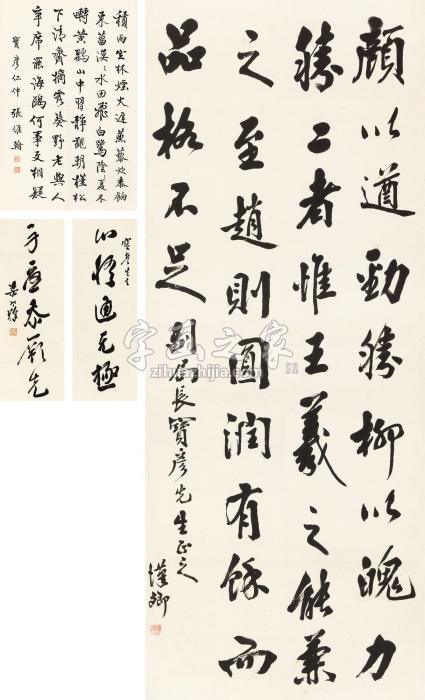 顏以遒勁勝柳以魄力
勝二者惟王羲之能兼
之至趙則圓潤有餘而
品格不足 劉局長寶彥先生正之
漢卿
積雨空林煙火遲蒸藜炊黍餉
東菑漠〻水田飛白鷺陰夏木
囀黃鸝山中習靜觀朝槿松
下清齋摘露葵野老與人
爭席罷海鷗何事更相疑
寶彥仁仲 張維翰
寶彥先生
通无極
先
字画之家